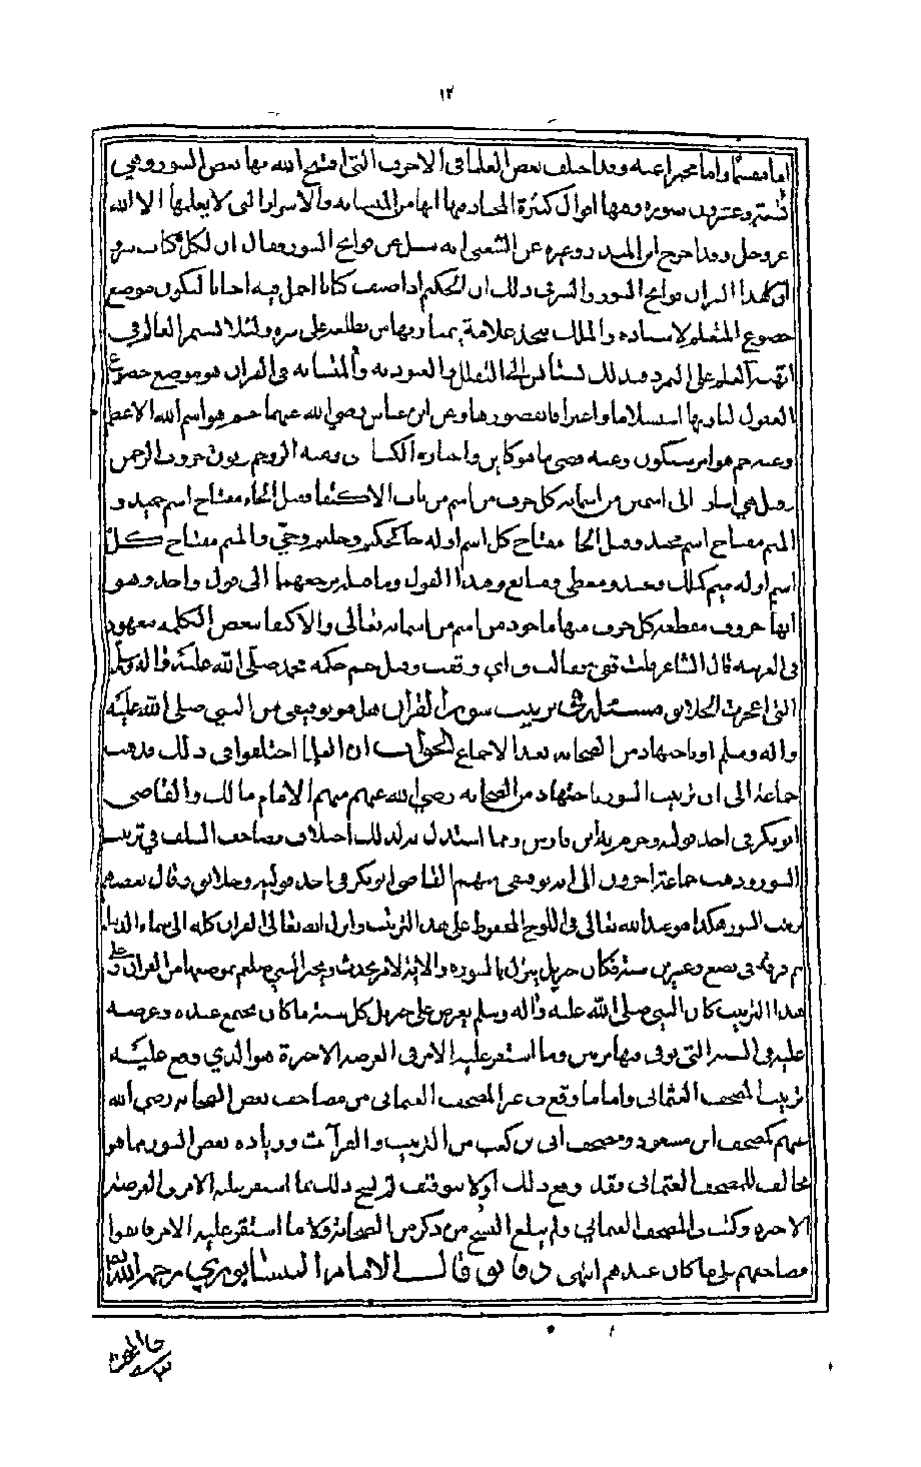 ١٢
اما مقسما واما مخبرا عنه وقد اختلف بعض العلما فى الاحرف التى افتتح الله بها بعض السور وهي
تسع وعشرون سورة وفيها اقوال كثيرة المختار منها انها من المتشابه والاسرار التى لا يعلمها الا الله
عز وجل وقد اخرج ابن المنذر وغيره عن الشعبى انه سئل عن فواتح السور فقال ان لكل كتاب سرا
وان لهذا القران فواتح السور والسر فى ذلك ان الحكيم اذا صنف كتابا اجمل فيه احيانا ليكون موضع
خضوع المتعلم لاستاذه والملك يتخذ علامة يمتاز بها من يطلعه على سره ولئلا تستمر العالم فى
ابهة العلم على التمرد فبذلك يستأنس الى التذلل والعبودية والمتشابه فى القران هو موضع خضوع
العقول لباريها استسلاما واعترافا بقصورها وعن ابن عباس رضي الله عنهما حم هو اسم الله الاعظم
وعنه حم هو امر سيكون وعنه قضى ما هو كاين واختاره الكسا ى وعنه الر وحم ون حروف الرحمن
وقيل هي اشار الى اسمين من اسمائه كل حرف من اسم من باب الاكتفا فقيل الحاء مفتاح اسم حميد و
الميم مفتاح اسم مجيد وقيل الحا مفتاح كل اسم اوله حا كحكيم وحليم وحيّ والميم مفتاح كل
اسم اوله ميم كملك ومجيد ومعطي ومانع وهذا القول وما قبله مرجعهما الى قول واحد وهو
انها حروف مقطعة كل حرف منها ماخوذ من اسم من اسمائه تعالى والاكتفا ببعض الكلمه معهود
فى العربيه قال الشاعر قلت قفي فقالت ق اي وقفت وقيل حم حكمه محمد صلى الله عليه واله وسلم
التى اعجزت الخلائق مسئلة فى ترتيب سور القران هل هو توقيفى من النبي صلى الله عليه
واله وسلم او باجتهاد من الصحابه بعد الاجماع الجواب ان العلما اختلفوا فى ذلك فذهب
جماعة الى ان ترتيب السور باجتهاد من الصحابه رضي الله عنهم منهم الامام مالك والقاضى
ابو بكر فى احد قوليه وجزم به ابن فارس ومما استدل به لذلك اختلاف مصاحف السلف فى ترتيب
السور وذهب جماعة اخرون الى انه توقيفى منهم القاضى ابو بكر فى احد قوليه وخلائق وقال بعضهم
ترتيب السور هكذا هو عند الله تعالى فى اللوح المحفوظ على هذا الترتيب وانزل الله تعالى القران كله الى سماء الدنيا
ثم فرقه فى بضع وعشرين سنة فكان جبريل ينزل بالسورة والاية لامر يحدث ويخبر النبي صلعم بموضعها من القران وعلى
هذا الترتيب كان النبي صلى الله عليه واله وسلم يعرض على جبريل كل سنة ما كان يجتمع عنده وعرضه
عليه فى السنة التى توفى فيها مرتين وما استقر عليه الامر فى العرضة الاخيرة هو الذي وقع عليه
ترتيب المصحف العثمانى واما ما وقع فى غير المصحف العثمانى من مصاحف بعض الصحابه رضي الله
عنهم كمصحف ابن مسعود ومصحف ابى بن كعب من الترتيب والقرآت وزياده بعض السور مما هو
مخالف للمصحف العثمانى فقد وقع ذلك اولا بتوقف ثم نسخ ذلك بما استقر عليه الامر فى العرضة
الاخيره وكتب فى المصحف العثمانى ولم يبلغ النسخ من ذكر من الصحابة ولا ما استقر عليه الامر فابقوا
مصاحفهم على ما كان عندهم انتهى دقائق قال الامام النيسابوري رحمه الله